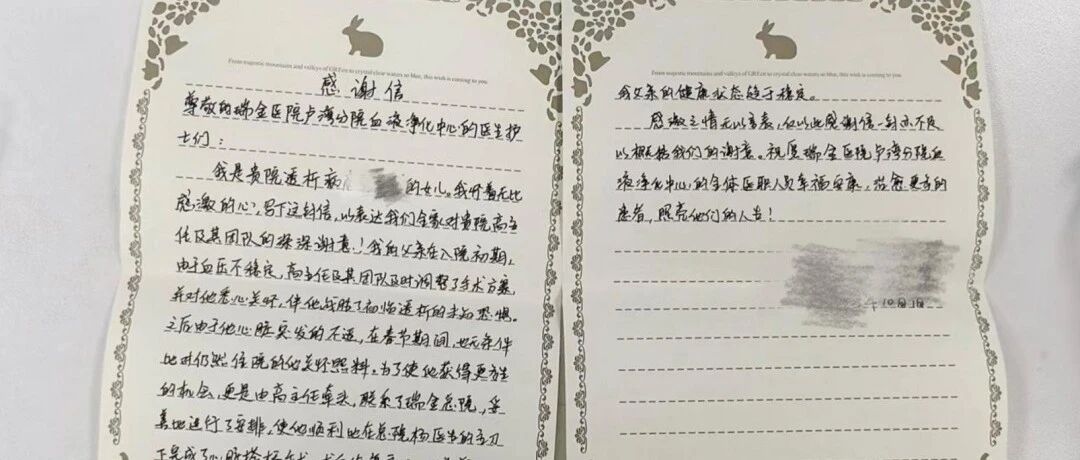 From majestic mountains and valleys of GREen to crystal clear waters so blue, this wish is coming to you
感谢信
尊敬的瑞金医院卢湾分院血液净化中心的医生护
士们：
我是贵院透析病 的女儿。我怀着无比
感激的心，写下这封信，以表达我们全家对贵院高主
任及其团队的深深谢意！我的父亲在入院初期，
由于血压不稳定，高主任及其团队及时调整了手术方案，
并对他悉心关怀，伴他战胜了面临透析的未知恐惧。
之后由于他心脏突发的不适，在春节期间，也无条件
地对仍然住院的他关怀照料。为了使他获得更为生
的机会，更是由高主任牵头，联系了瑞金总院，妥
善地进行了安排，使他顺利地在总院杨医生的主刀
下完成了心脏搭桥手术
From majestic mountains and valleys of GREen to crystal clear waters so blue, this wish is coming to you
我父亲的健康状态趋于稳定。
感激之情无以言表，仅以此感谢信一封亦不足
以概括我们的谢意。祝愿瑞金医院卢湾分院血
液净化中心的全体医职人员幸福安康，治愈更多的
患者，照亮他们的人生！
年10月18日